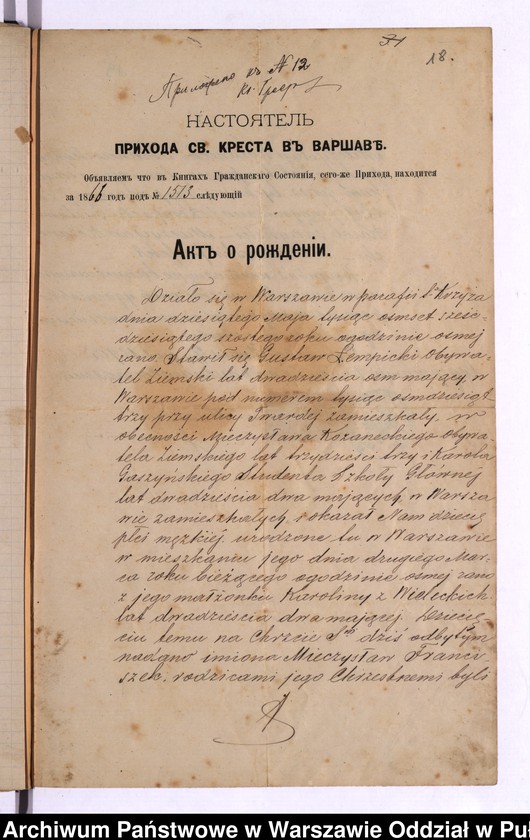 18.
къ № 12
НАСТОЯТЕЛЬ
ПРИХОДА СВ. КРЕСТА ВЪ ВАРШАВѢ.
Объявляемъ что въ Книгахъ Гражданскаго Состоянія, сего-же Прихода, находится
за 1866 годъ подъ № 1513 слѣдующій
Актъ о рожденіи.
Działo się w Warszawie w parafii Sº Krzyża
dnia dziesiątego Maja tysiąc osmset sześć-
dziesiątego szóstego roku o godzinie osmej
rano. Stawił się Gustaw Łempicki Obywa-
tel Ziemski lat dwadzieścia osm mający, w
Warszawie pod numerem tysiąc osmdziesiąt
trzy przy ulicy Twardej zamieszkały, w
obecności Mieczysława Kozaneckiego Obywa-
tela Ziemskiego lat trzydzieści trzy i Karola
Gaszyńskiego Studenta Szkoły Głównej
lat dwadzieścia dwa mających, w Warsza-
wie zamieszkałych, i okazał Nam dziecię
płci męzkiej urodzone tu w Warszawie
w mieszkaniu jego dnia drugiego Mar-
ca roku bieżącego o godzinie osmej rano
z jego małżonki Karoliny z
lat dwadzieścia dwa mającej. Dziecię-
ciu temu na Chrzcie Sym dziś odbytym
nadano imiona Mieczysław Franci-
szek. rodzicami jego Chrzestnemi byli
Archiwum Państwowe w Warszawie Oddział w Pu